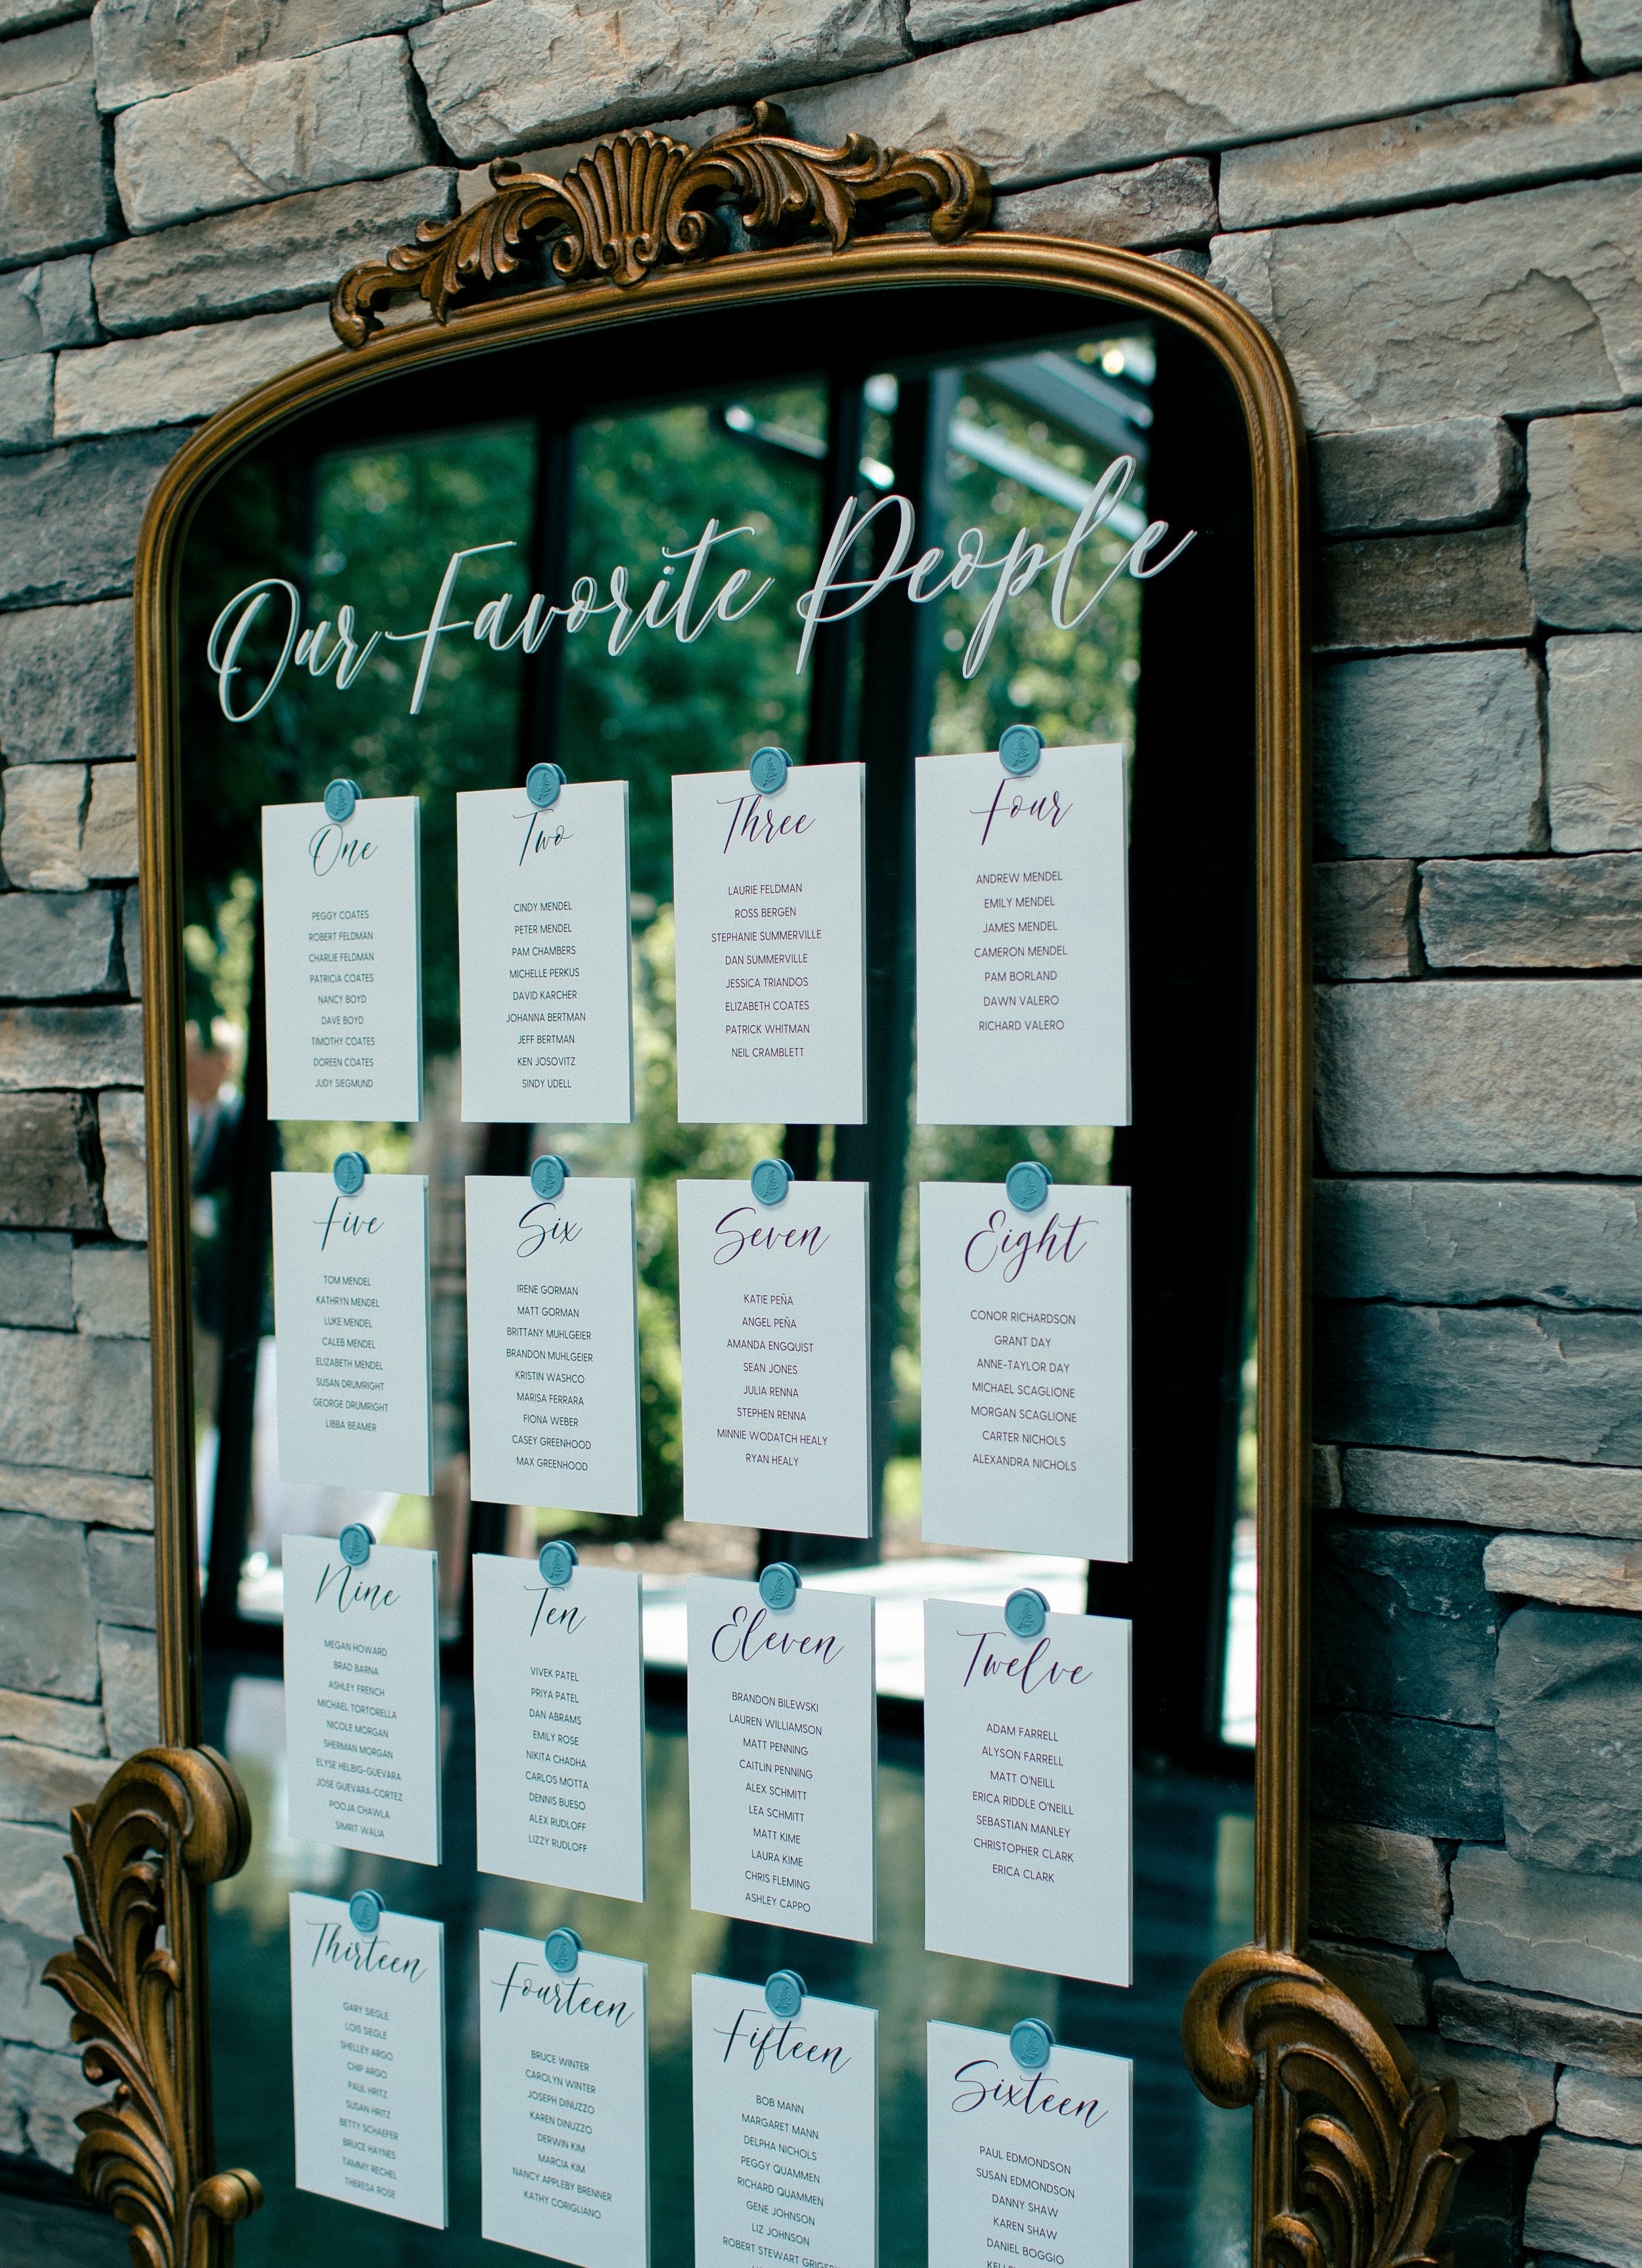 Our Favorite People
One
PEGGY COATES
ROBERT FELDMAN
CHARLIE FELDMAN
PATRICIA COATES
NANCY BOYD
DAVE BOYD
TIMOTHY COATES
DOREEN COATES
JUDY SIEGMUND
Two
CINDY MENDEL
PETER MENDEL
PAM CHAMBERS
MICHELLE PERKUS
DAVID KARCHER
JOHANNA BERTMAN
JEFF BERTMAN
KEN JOSOVITZ
SINDY UDELL
Three
LAURIE FELDMAN
ROSS BERGEN
STEPHANIE SUMMERVILLE
DAN SUMMERVILLE
JESSICA TRIANDOS
ELIZABETH COATES
PATRICK WHITMAN
NEIL CRAMBLETT
Four
ANDREW MENDEL
EMILY MENDEL
JAMES MENDEL
CAMERON MENDEL
PAM BORLAND
DAWN VALERO
RICHARD VALERO
Five
TOM MENDEL
KATHRYN MENDEL
LUKE MENDEL
CALEB MENDEL
ELIZABETH MENDEL
SUSAN DRUMRIGHT
GEORGE DRUMRIGHT
LIBBA BEAMER
Six
IRENE GORMAN
MATT GORMAN
BRITTANY MUHLGEIER
BRANDON MUHLGEIER
KRISTIN WASHCO
MARISA FERRARA
FIONA WEBER
CASEY GREENHOOD
MAX GREENHOOD
Seven
KATIE PEÑA
ANGEL PEÑA
AMANDA ENGQUIST
SEAN JONES
JULIA RENNA
STEPHEN RENNA
MINNIE WODATCH HEALY
RYAN HEALY
Eight
CONOR RICHARDSON
GRANT DAY
ANNE-TAYLOR DAY
MICHAEL SCAGLIONE
MORGAN SCAGLIONE
CARTER NICHOLS
ALEXANDRA NICHOLS
Nine
MEGAN HOWARD
BRAD BARNA
ASHLEY FRENCH
MICHAEL TORTORELLA
NICOLE MORGAN
SHERMAN MORGAN
ELYSE HELBIG-GUEVARA
JOSE GUEVARA-CORTEZ
POOJA CHAWLA
SIMRIT WALIA
Ten
VIVEK PATEL
PRIYA PATEL
DAN ABRAMS
EMILY ROSE
NIKITA CHADHA
CARLOS MOTTA
DENNIS BUESO
ALEX RUDLOFF
LIZZY RUDLOFF
Eleven
BRANDON BILEWSKI
LAUREN WILLIAMSON
MATT PENNING
CAITLIN PENNING
ALEX SCHMITT
LEA SCHMITT
MATT KIME
LAURA KIME
CHRIS FLEMING
ASHLEY CAPPO
Twelve
ADAM FARRELL
ALYSON FARRELL
MATT O'NEILL
ERICA RIDDLE O'NEILL
SEBASTIAN MANLEY
CHRISTOPHER CLARK
ERICA CLARK
Thirteen
GARY SIEGLE
LOIS SIEGLE
SHELLEY ARGO
CHIP ARGO
PAUL HRITZ
SUSAN HRITZ
BETTY SCHAEFER
BRUCE HAYNES
TAMMY RECHEL
THERESA ROSE
Fourteen
BRUCE WINTER
CAROLYN WINTER
JOSEPH DINUZZO
KAREN DINUZZO
DERWIN KIM
MARCIA KIM
NANCY APPLEBY BRENNER
KATHY CORIGLIANO
Fifteen
BOB MANN
MARGARET MANN
DELPHA NICHOLS
PEGGY QUAMMEN
RICHARD QUAMMEN
GENE JOHNSON
LIZ JOHNSON
ROBERT STEWART
Sixteen
PAUL EDMONDSON
SUSAN EDMONDSON
DANNY SHAW
KAREN SHAW
DANIEL BOGGIO